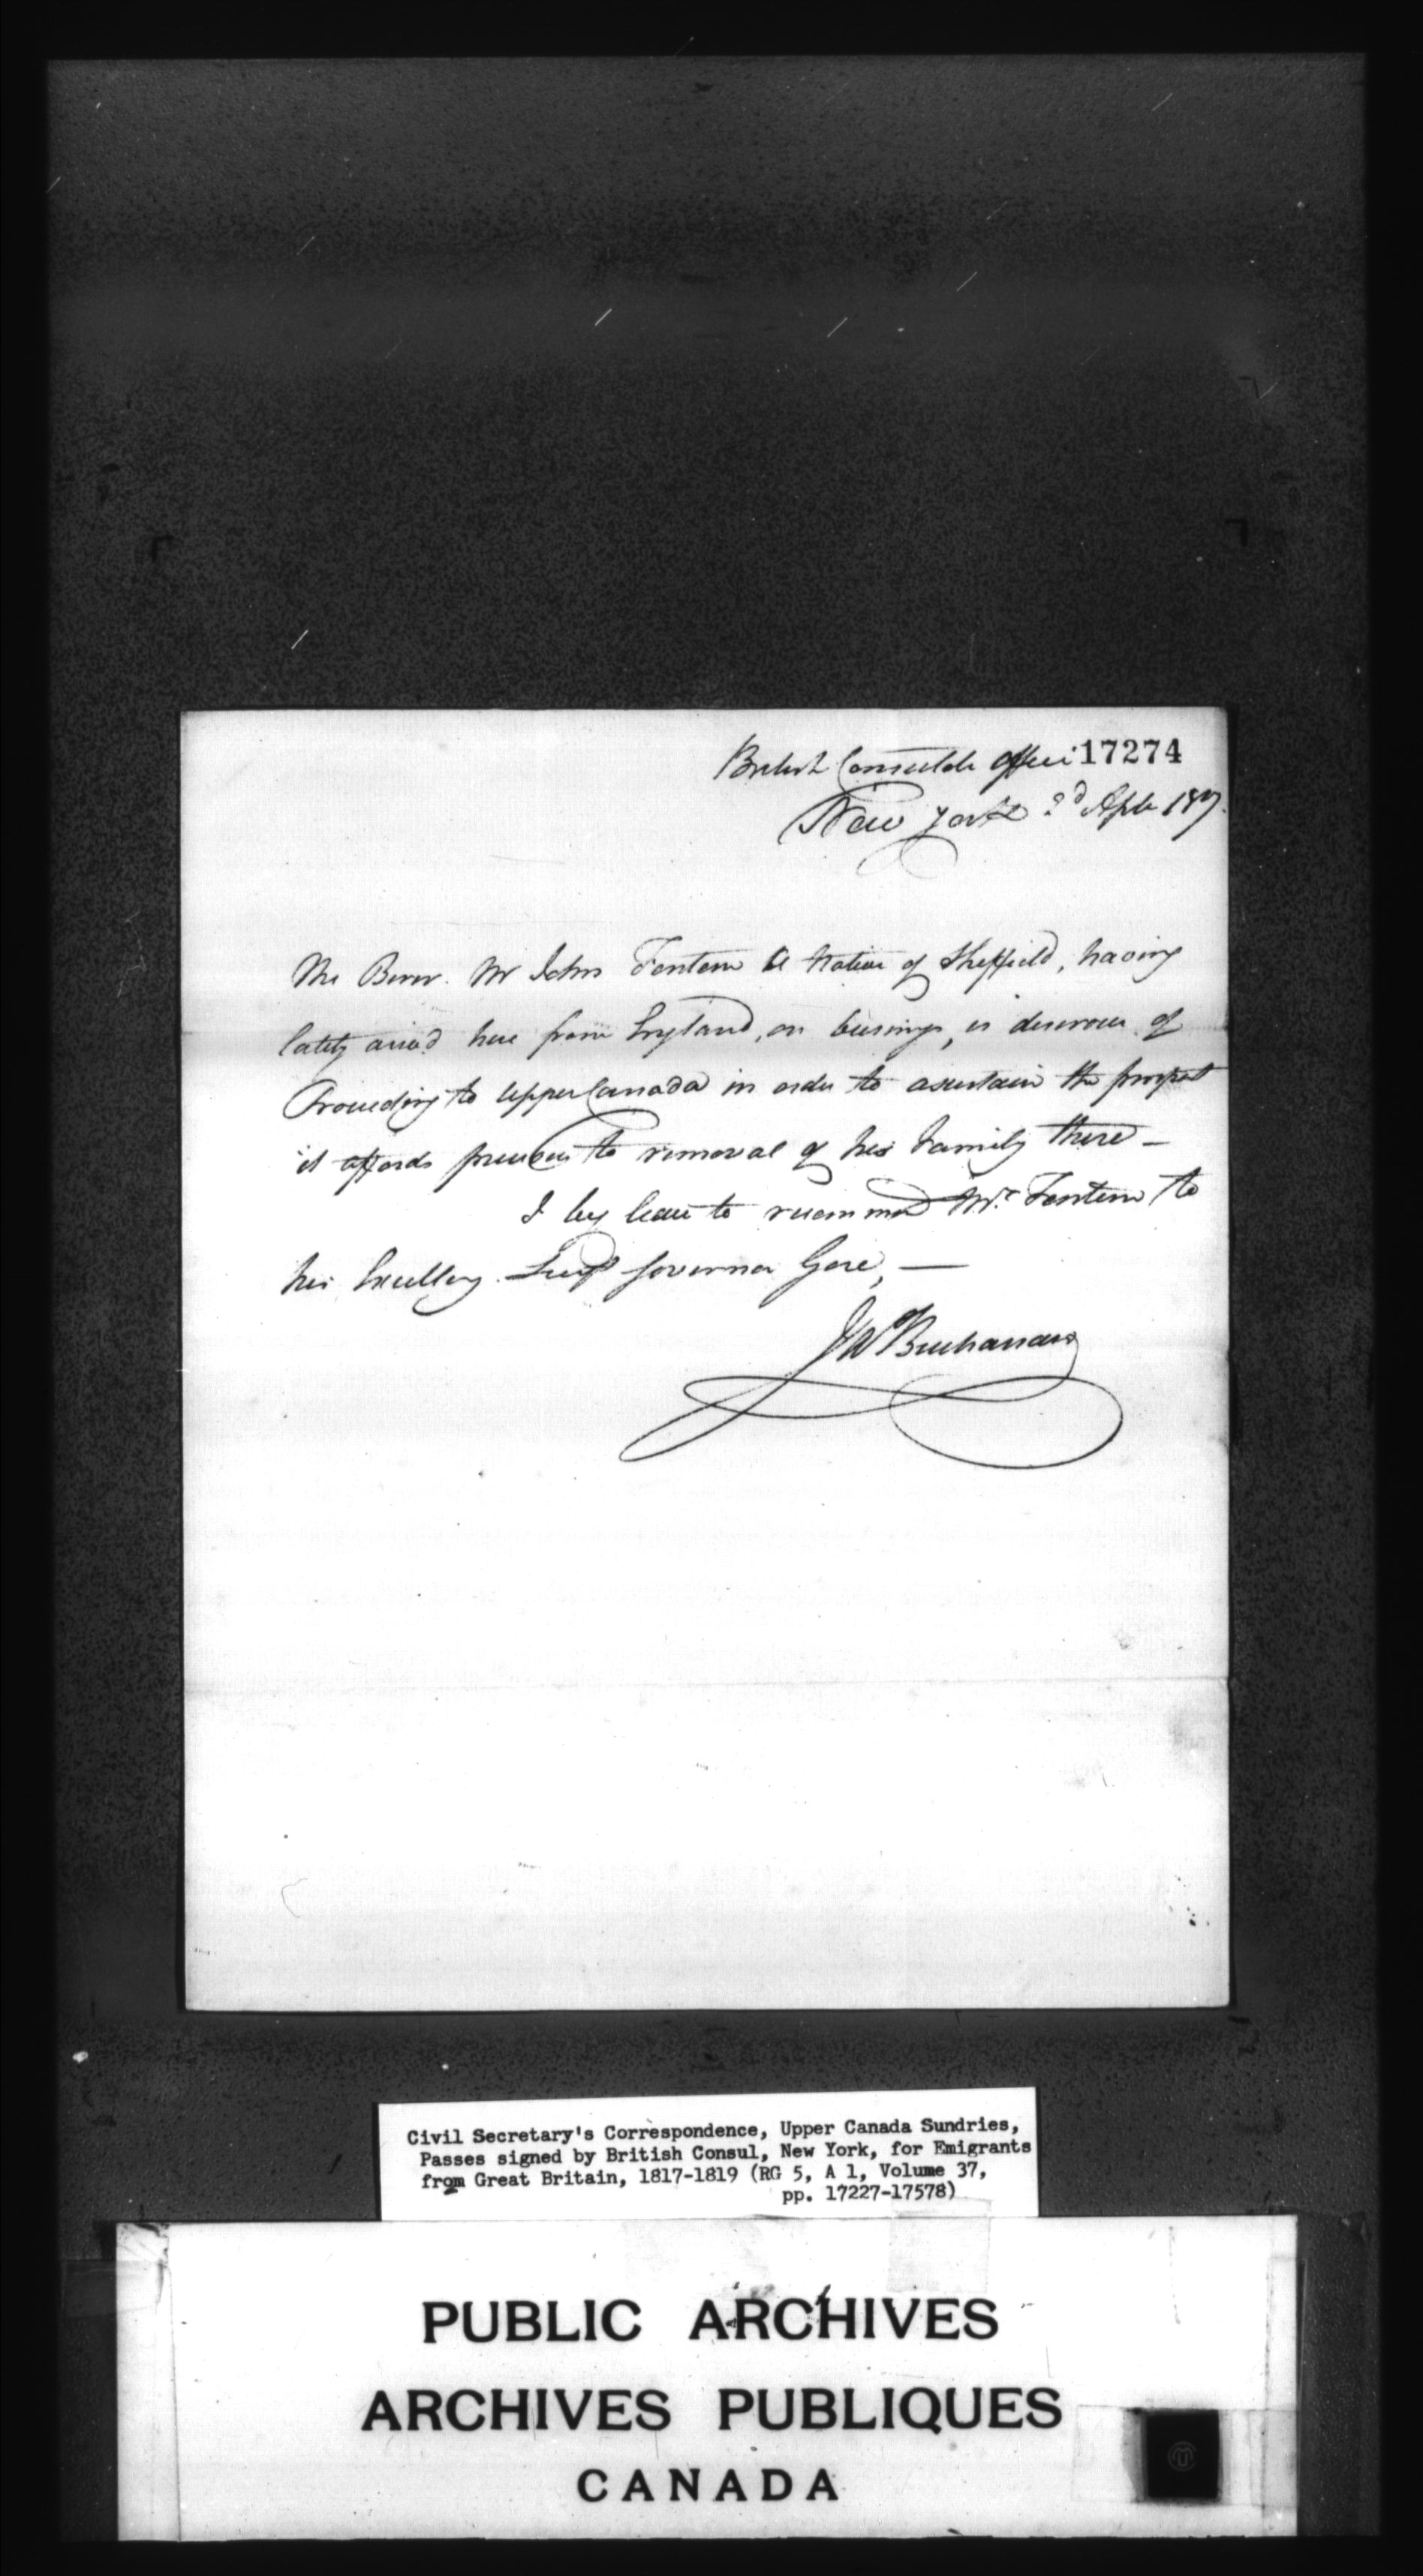 British Consulate Office 17274
New York 2d Aple 1817.
The Bearer. Mr John Fenteno a Native of Sheffield, having
lately arivd here from England, on business, is desirous of
Proceeding to Upper Canada in order to ascertain the prospect
it affords previous to removal of his Family there —
I beg leave to recommend Mr. Fenteno to
his Excellency Governor Gore, —
JW Buchanan
Civil Secretary's Correspondence, Upper Canada Sundries,
Passes signed by British Consul, New York, for Emigrants
from Great Britain, 1817-1819 (RG 5, A 1, Volume 37,
pp. 17227-17578)
PUBLIC ARCHIVES
ARCHIVES PUBLIQUES
CANADA